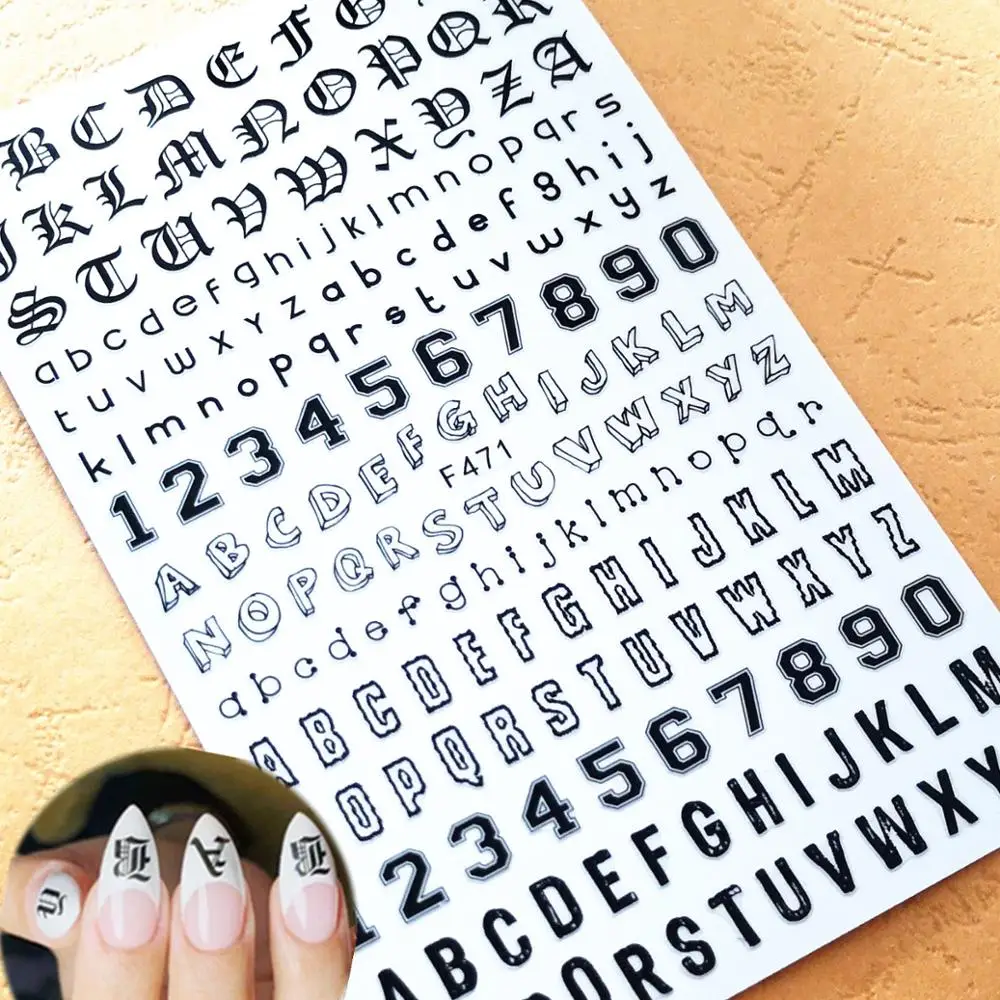 B C D E F G
J K L M N O P Q R
S T U V W X Y Z A
a b c d e f g h i j k l m n o p q r s
t u v w x y z a b c d e f g h i j
k l m n o p q r s t u v w x y z
1 2 3 4 5 6 7 8 9 0
A B C D E F G H I J K L M
F471
N O P Q R S T U V W X Y Z
a b c d e f g h i j k l m n o p q r
A B C D E F G H I J K L M
O P Q R S T U V W X Y Z
1 2 3 4 5 6 7 8 9 0
A B C D E F G H I J K L M
P Q R S T U V W X Y